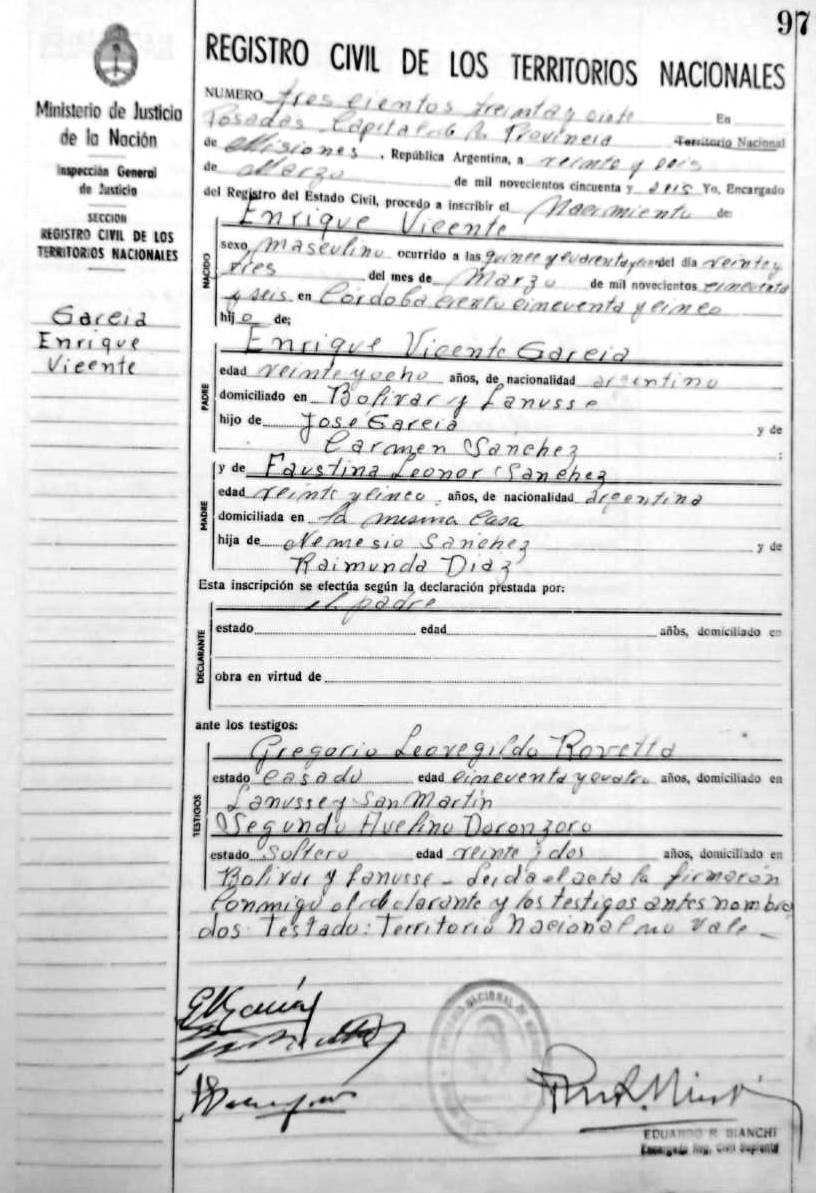 97
Ministerio de Justicia
de la Nación
Inspección General
de Justicia
SECCION
REGISTRO CIVIL DE LOS
TERRITORIOS NACIONALES
Garcia
Enrique
Vicente
REGISTRO CIVIL DE LOS TERRITORIOS NACIONALES
NUMERO tres cientos treinta y siete En
Posadas Capital de la Provincia Territorio Nacional
de Misiones, República Argentina, a veinte y seis
de Marzo de mil novecientos cincuenta y seis Yo, Encargado
del Registro del Estado Civil, procedo a inscribir el Nacimiento de:
NACIDO
Enrique Vicente
sexo masculino ocurrido a las quince y cuarenta y del día veinte y
tres del mes de Marzo de mil novecientos cincuenta
y seis en Córdoba ciento cincuenta y cinco
hijo de:
PADRE
Enrique Vicente Garcia
edad veinte y ocho años, de nacionalidad argentino
domiciliado en Bolivar y Lanusse
hijo de José Garcia y de
Carmen Sanchez ;
MADRE
y de Faustina Leonor Sanchez
edad veinte y cinco años, de nacionalidad argentina
domiciliada en la misma casa
hija de Nemesio Sanchez y de
Raimunda Diaz
Esta inscripción se efectúa según la declaración prestada por:
DECLARANTE
el padre
estado edad años, domiciliado en
obra en virtud de
ante los testigos:
TESTIGOS
Gregorio Leovegildo Rovetta
estado casado edad cincuenta y cuatro años, domiciliado en
Lanusse y San Martín
Segundo Avelino Doronzoro
estado soltero edad veinte y dos años, domiciliado en
Bolivar y Lanusse - Leida el acta la firmaron
conmigo el declarante y los testigos antes nombra
dos Testado: Territorio Nacional no vale -
EDUARDO R. BIANCHI
Encargado Reg. Civil Suplente